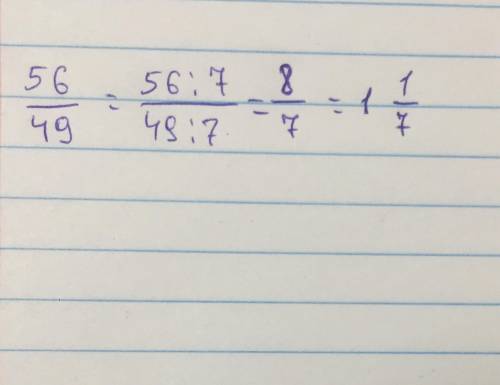 56/49 = 56:7/49:7 = 8/7 = 1 1/7